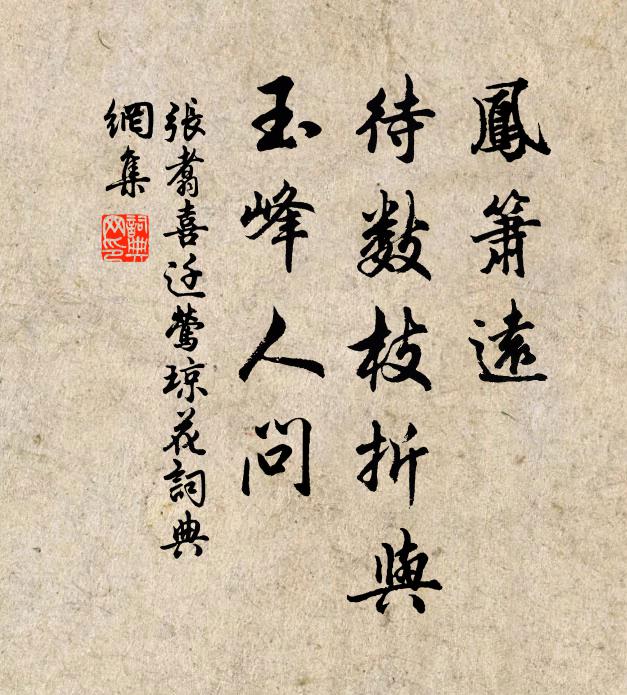 鳳簫遠
待數枝折與
玉峰人問
張翥喜迁鶯琼花詞典
網集
詞典网印